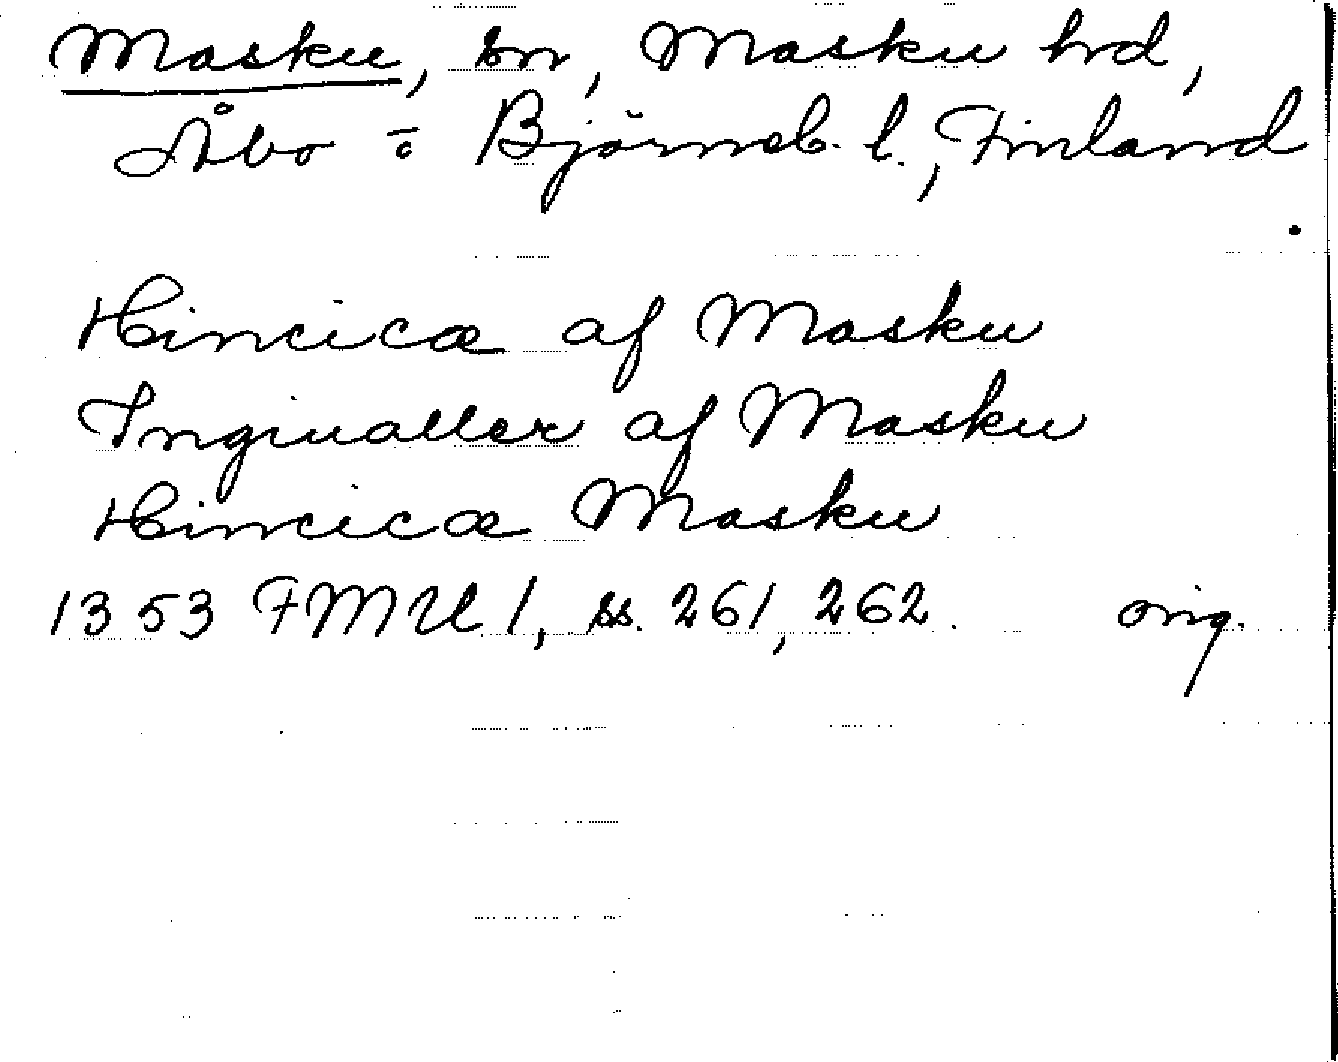 Masku, sn, Masku hrd,
Åbo o Björneb. l., Finland
Hincica af Masku
Ingiualler af Masku
Hincica Masku
1353 FMU 1, ss. 261, 262. orig.